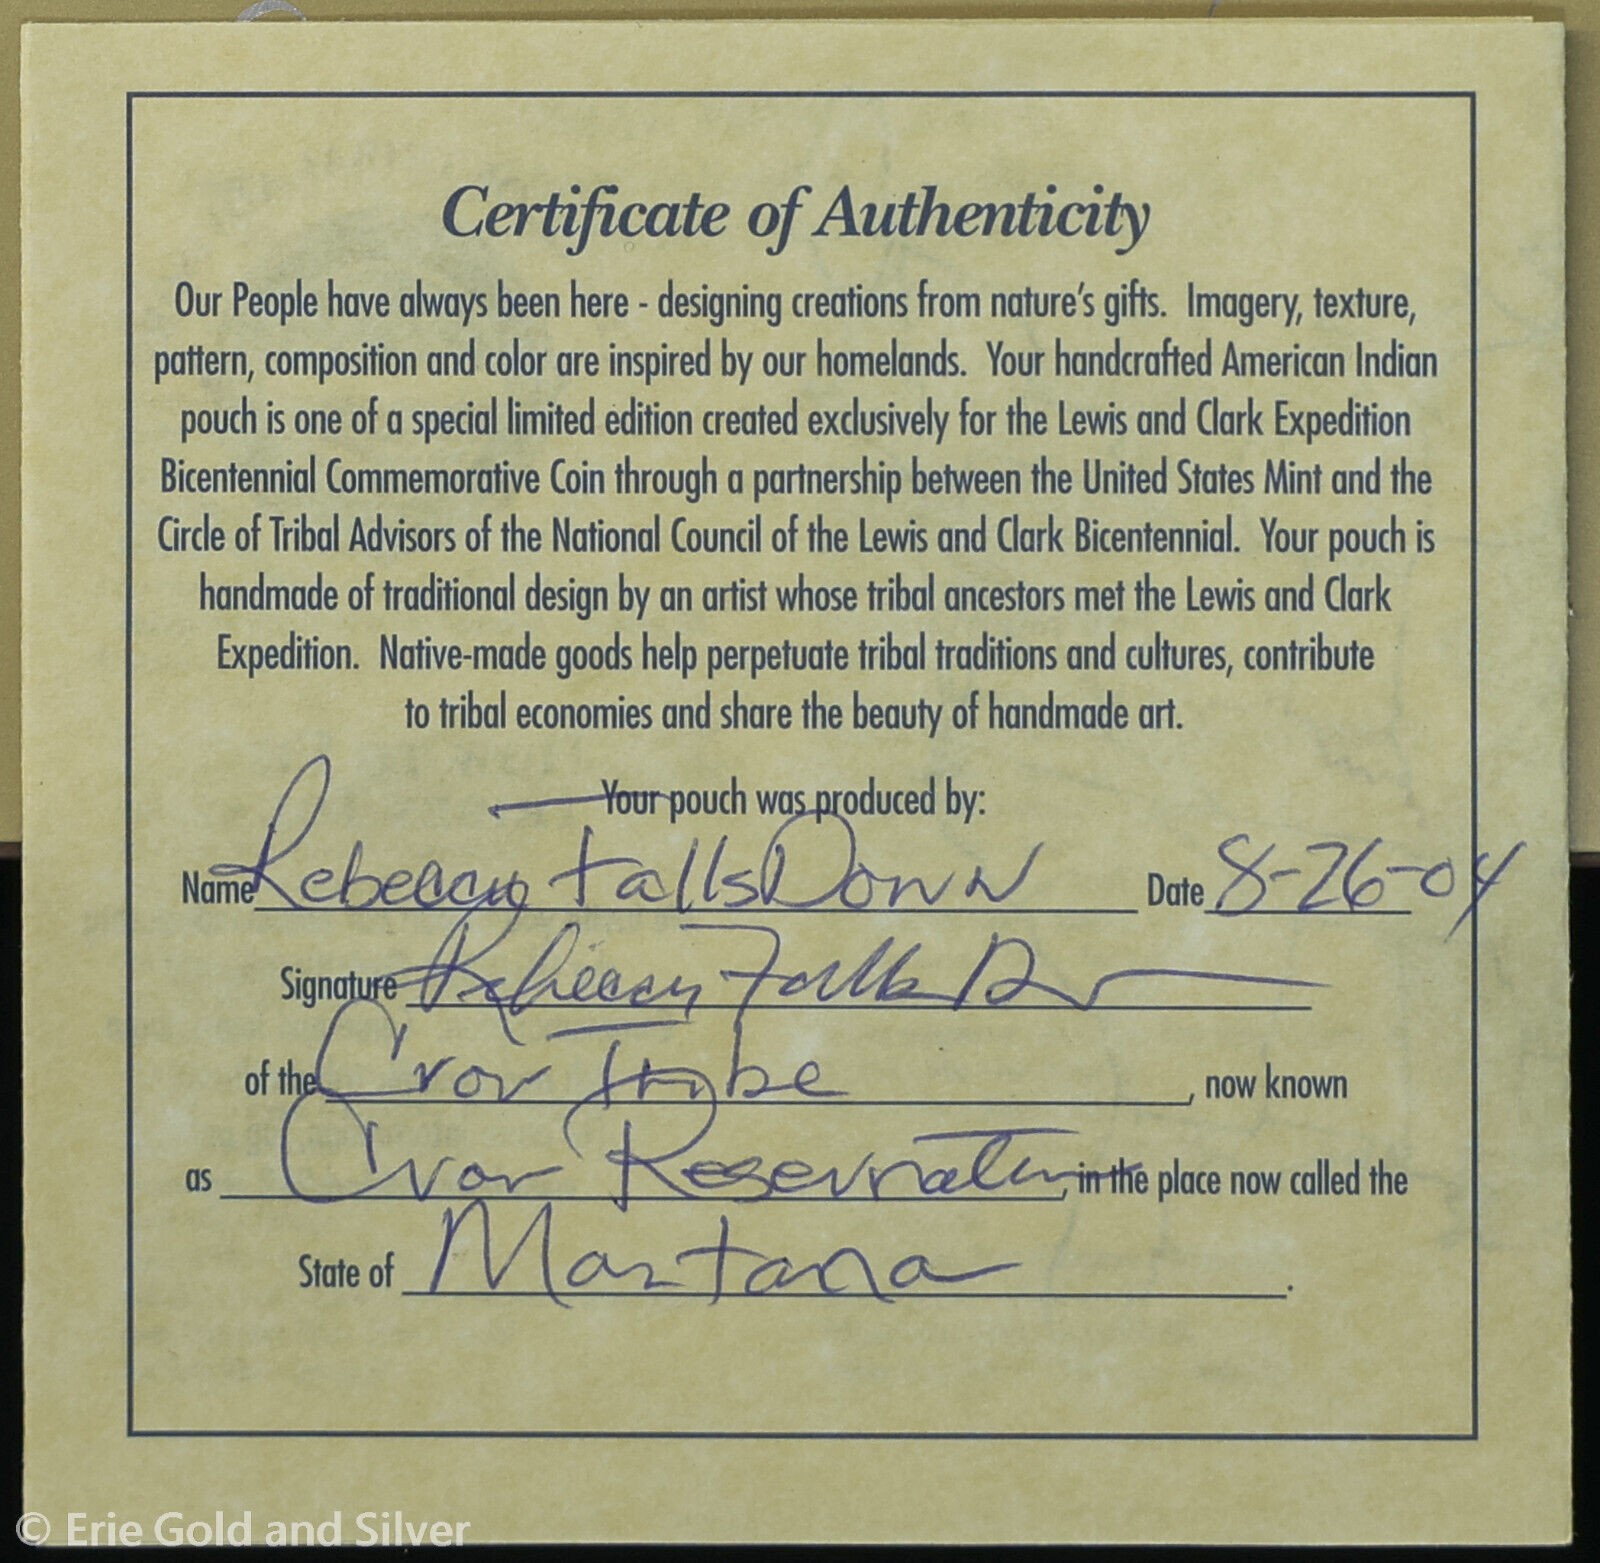 Certificate of Authenticity
Our People have always been here - designing creations from nature's gifts. Imagery, texture,
pattern, composition and color are inspired by our homelands. Your handcrafted American Indian
pouch is one of a special limited edition created exclusively for the Lewis and Clark Expedition
Bicentennial Commemorative Coin through a partnership between the United States Mint and the
Circle of Tribal Advisors of the National Council of the Lewis and Clark Bicentennial. Your pouch is
handmade of traditional design by an artist whose tribal ancestors met the Lewis and Clark
Expedition. Native-made goods help perpetuate tribal traditions and cultures, contribute
to tribal economies and share the beauty of handmade art.
Your pouch was produced by:
Name Rebecca FallsDown Date 8-26-04
Signature Rebecca Falls Down
of the Crow Tribe, now known
as Crow Reservation, in the place now called the
State of Montana.
© Erie Gold and Silver